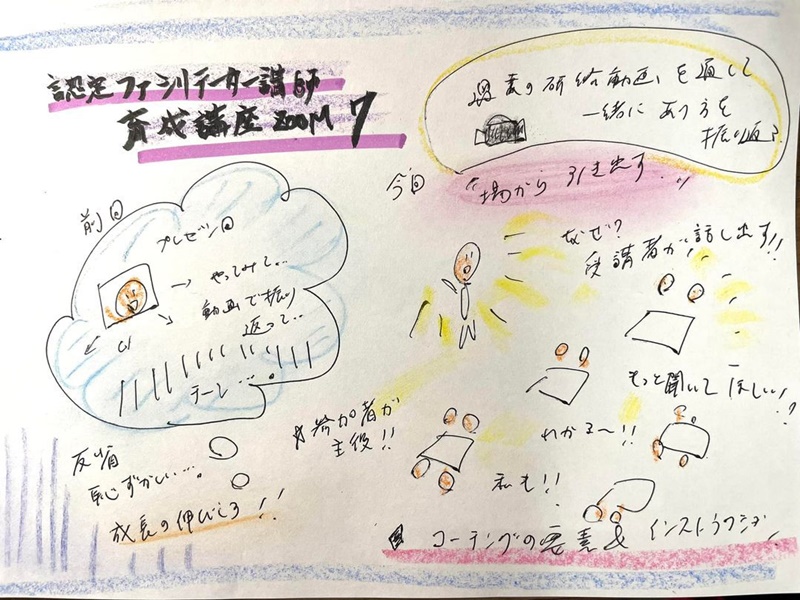 認定ファシリテーター講師
育成講座 ZOOM 7
過去の研修動画を通して
一緒にあり方を
振り返る
今回
"場から引き出す"
前回
プレゼン回
→ やってみて…
動画で振り
返って…
テーン…。
反省
恥ずかしい…。
成長の伸びしろ!!
なぜ?
受講者が話し出す!!
もっと聞いてほしい!?
わかる〜!!
私も!!
参加者が
主役!!
コーチングの要素& インストラクション